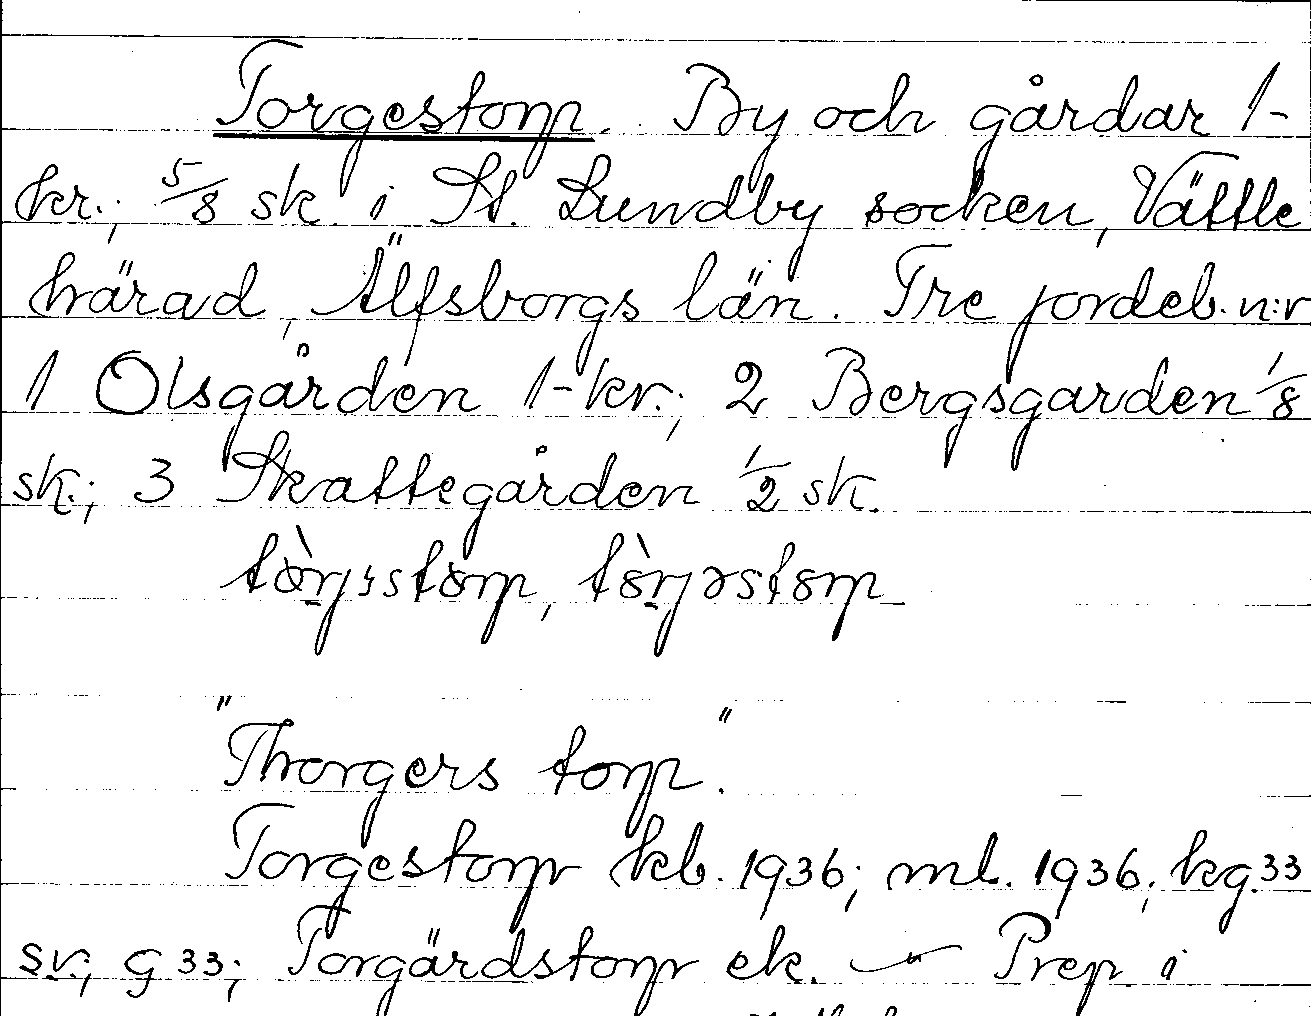 Torgestorp. By och gårdar 1-
kr.; 5/8 sk. i St. Lundby socken, Vättle
härad, Älfsborgs län. Tre jordeb. n:r
1 Olsgården 1-kr.; 2 Bergsgarden 1/8
sk.; 3 Skattegården 1/2 sk.
"Thorgers torp."
Torgestorp kb. 1936; ml. 1936; kg. 33
sv.; G 33; Torgärdstorp ek. — Prep. i